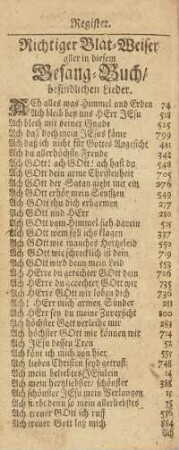 Register.
Richtiger Blat-Weiser
aller in diesem
Gesang-Buch/
befindlichen Lieder.
ACh alles was Himmel und Erden 74
Ach bleib bey uns HErr JEsu 518
Ach bleib mit deiner Gnade 525
Ach daß doch mein JEsus käme 799
Ach daß ich nicht für Gottes Angesicht 421
Ach du allerhöchste Freude 342
Ach GOtt! ach GOtt! ach hast du 548
Ach GOtt dein arme Christenheit 705
Ach GOtt der Satan nicht mit ein 276
Ach GOtt erhör mein Seufftzen 549
Ach GOtt thu dich erbarmen 277
Ach GOtt und HErr 210
Ach GOtt vom Himmel sieh darein 515
Ach GOtt wem soll ichs klagen 337
Ach GOtt wie manches Hertzeleid 559
Ach GOtt wie schrecklich ist dein 719
Ach GOtt wird dann mein leid 553
Ach HErre du gerechter GOtt dein 706
Ach HErre du gerechter GOtt wir 735
Ach HErre GOtt wir loben dich 736
Ach HErr mich armen Sünder 211
Ach HErr sey du meine Zuversicht 800
Ach höchster Gott verleihe mir 283
Ach höchster GOtt wie können wir 714
Ach JEsu dessen Treu 52
Ach könt ich mich von hier 555
Ach lieben Christen seyd getrost 748
Ach mein beliebtes JEsulein 14
Ach mein hertzliebster/ schönster 388
Ach schönster JEsu mein Verlangen 15
Ach stirbt denn so mein allerliebstes 75
Ach treuer GOtt ich ruff 556
Ach treuer Gott laß mich 884
Ach